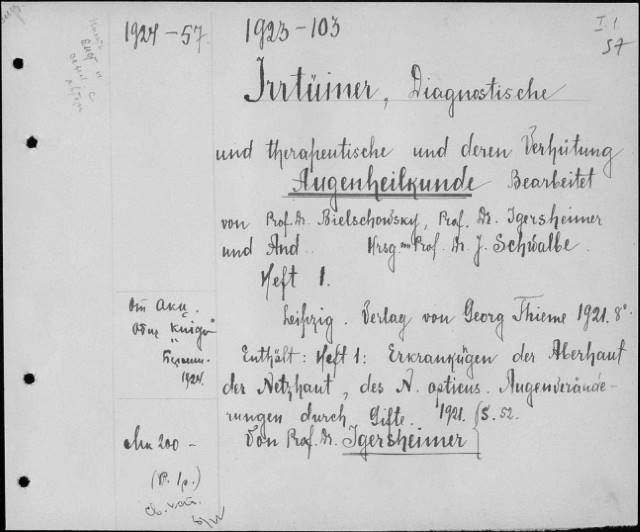 1924-57.
1923-103
I.1
57
Irrtümer, Diagnostische
und therapeutische und deren Verhütung
Augenheilkunde Bearbeitet
von Prof. Dr. Bielschowsky, Prof. Dr. Igersheimer
und And. Hrsg. von Prof. Dr. J. Schwalbe.
Heft 1.
Leipzig. Verlag von Georg Thieme 1921. 8°
Enthält: Heft 1: Erkrankügen der Aberhaut
der Netzhaut, des N. opticus. Augenverände-
rungen durch Gifte. 1921. S. 52.
Von Prof. Dr. Igersheimer
От Акц.
Общ. "Книга"
1924.
Мк 200 -